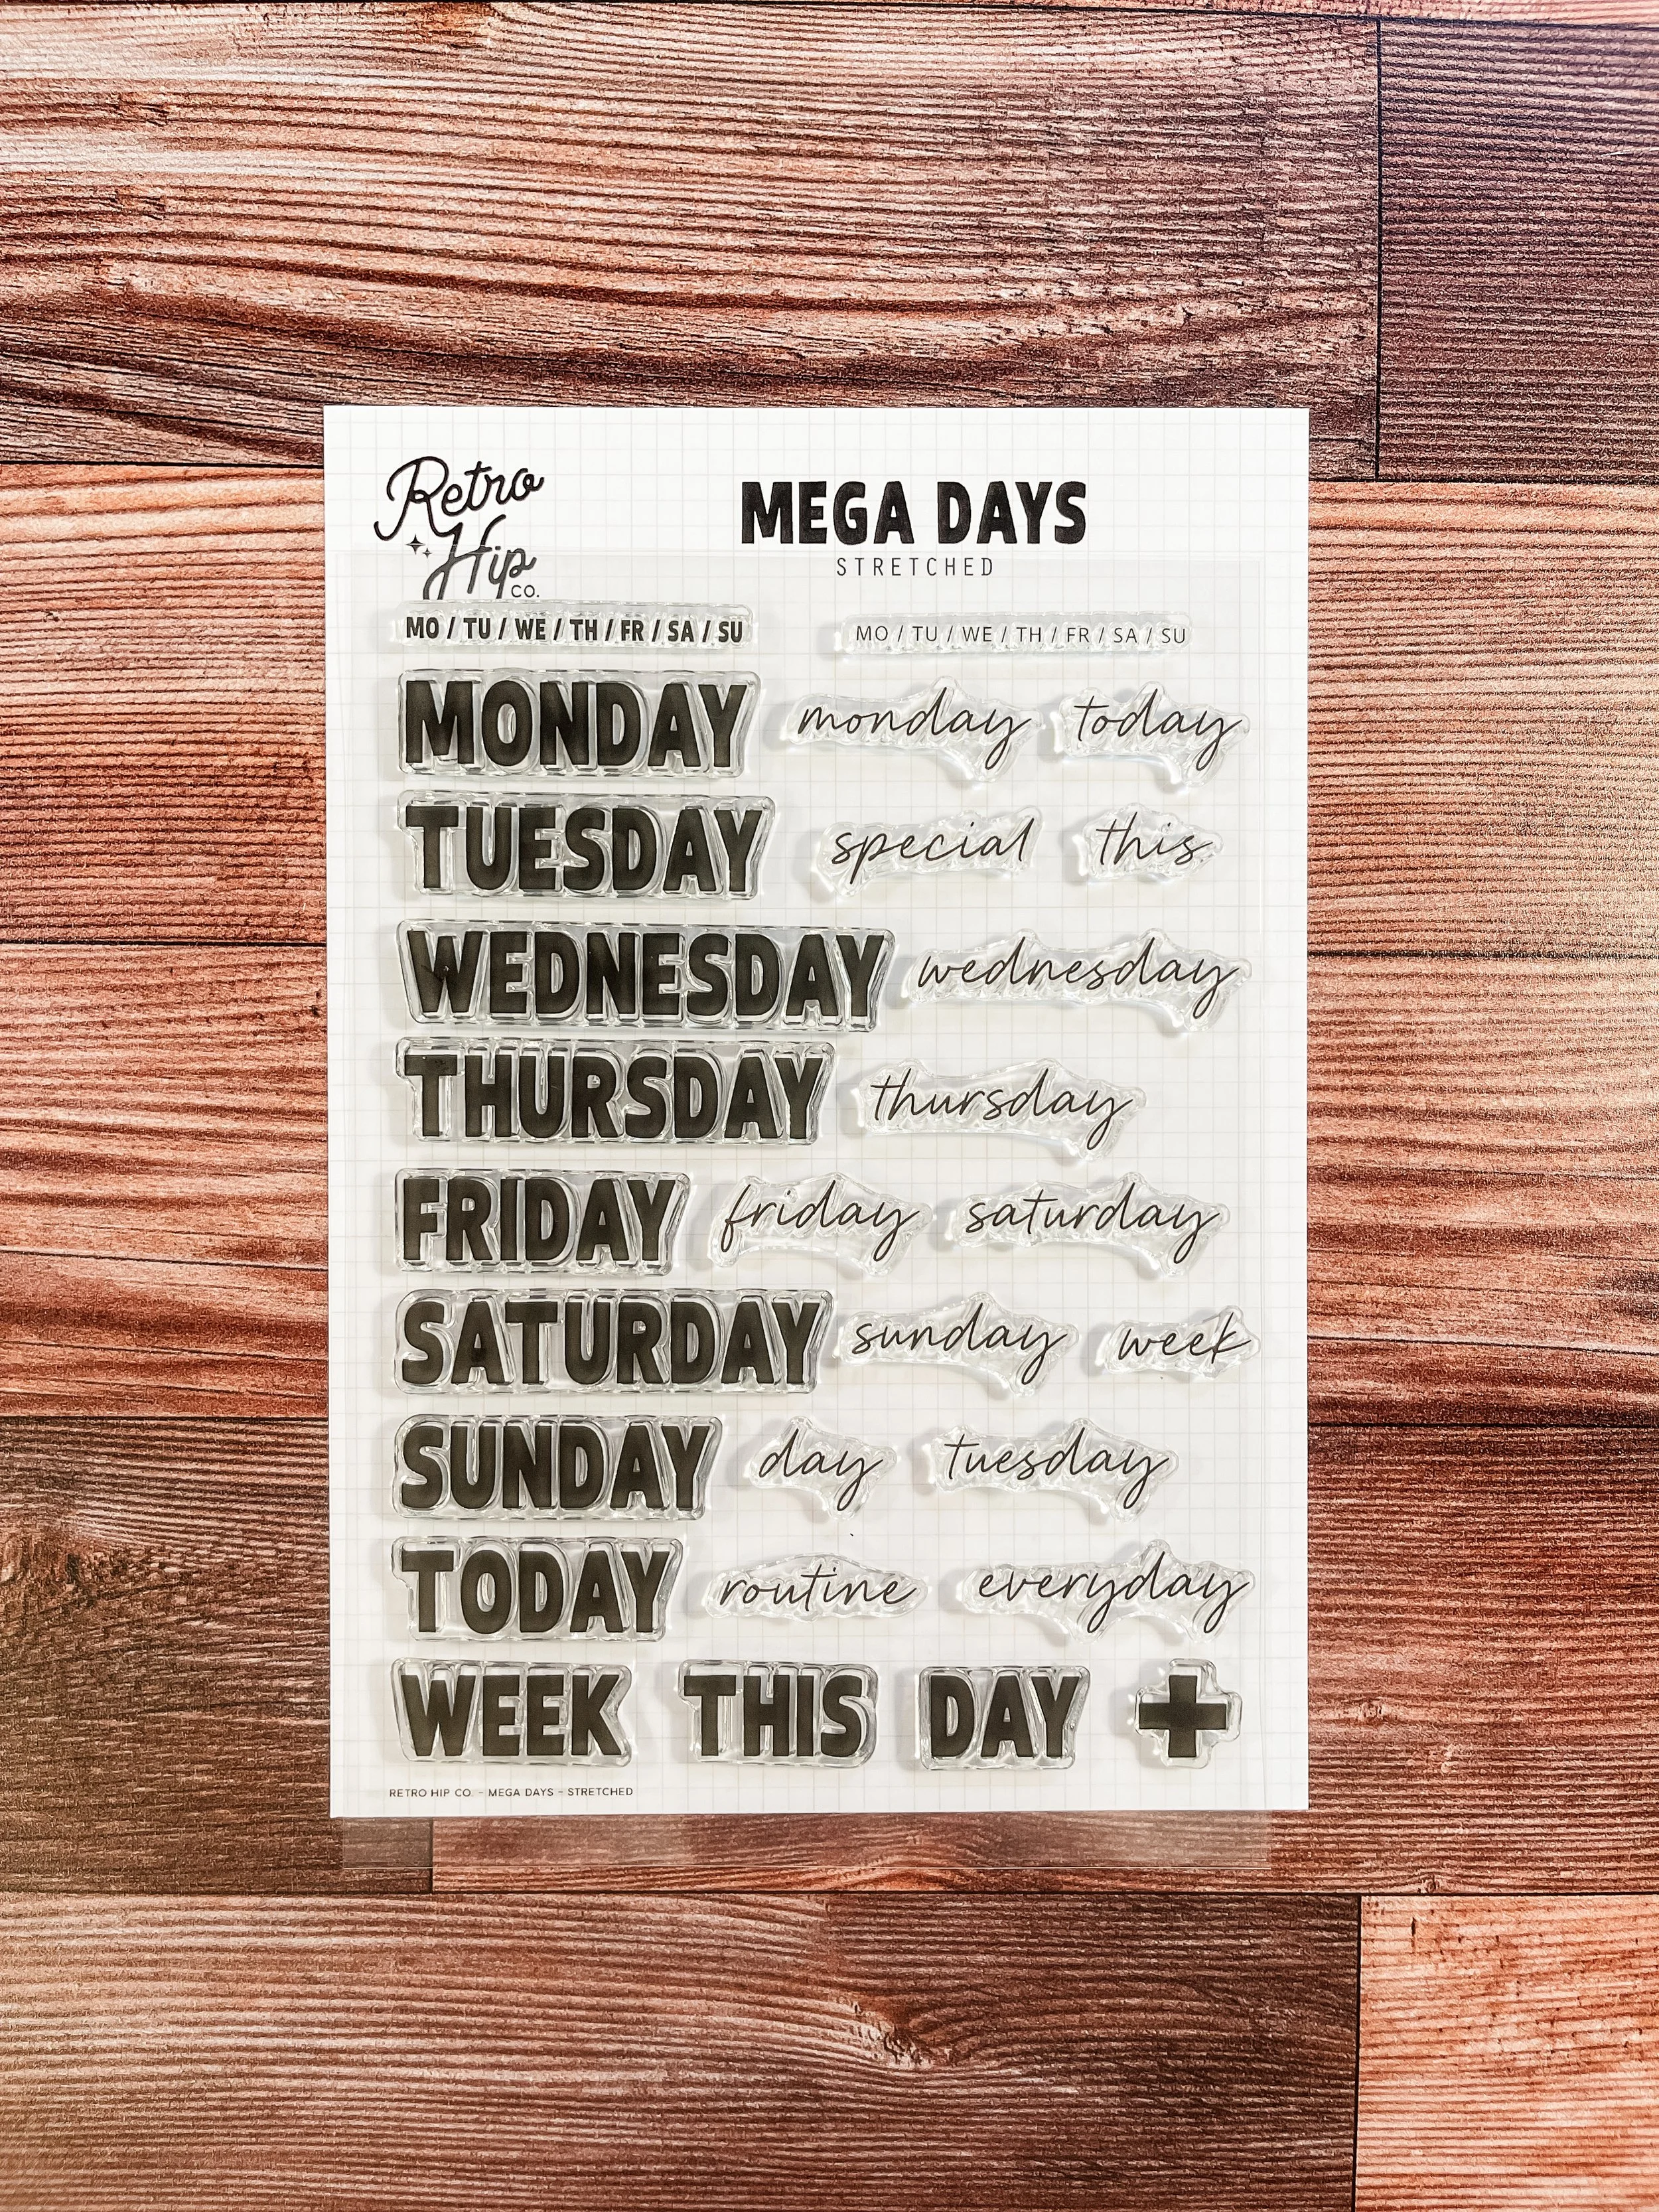 Retro
Hip
CO.
MEGA DAYS
STRETCHED
MO / TU / WE / TH / FR / SA / SU
MO / TU / WE / TH / FR / SA / SU
MONDAY monday today
TUESDAY special this
WEDNESDAY wednesday
THURSDAY thursday
FRIDAY friday saturday
SATURDAY sunday week
SUNDAY day tuesday
TODAY routine everyday
WEEK THIS DAY +
RETRO HIP CO. - MEGA DAYS - STRETCHED